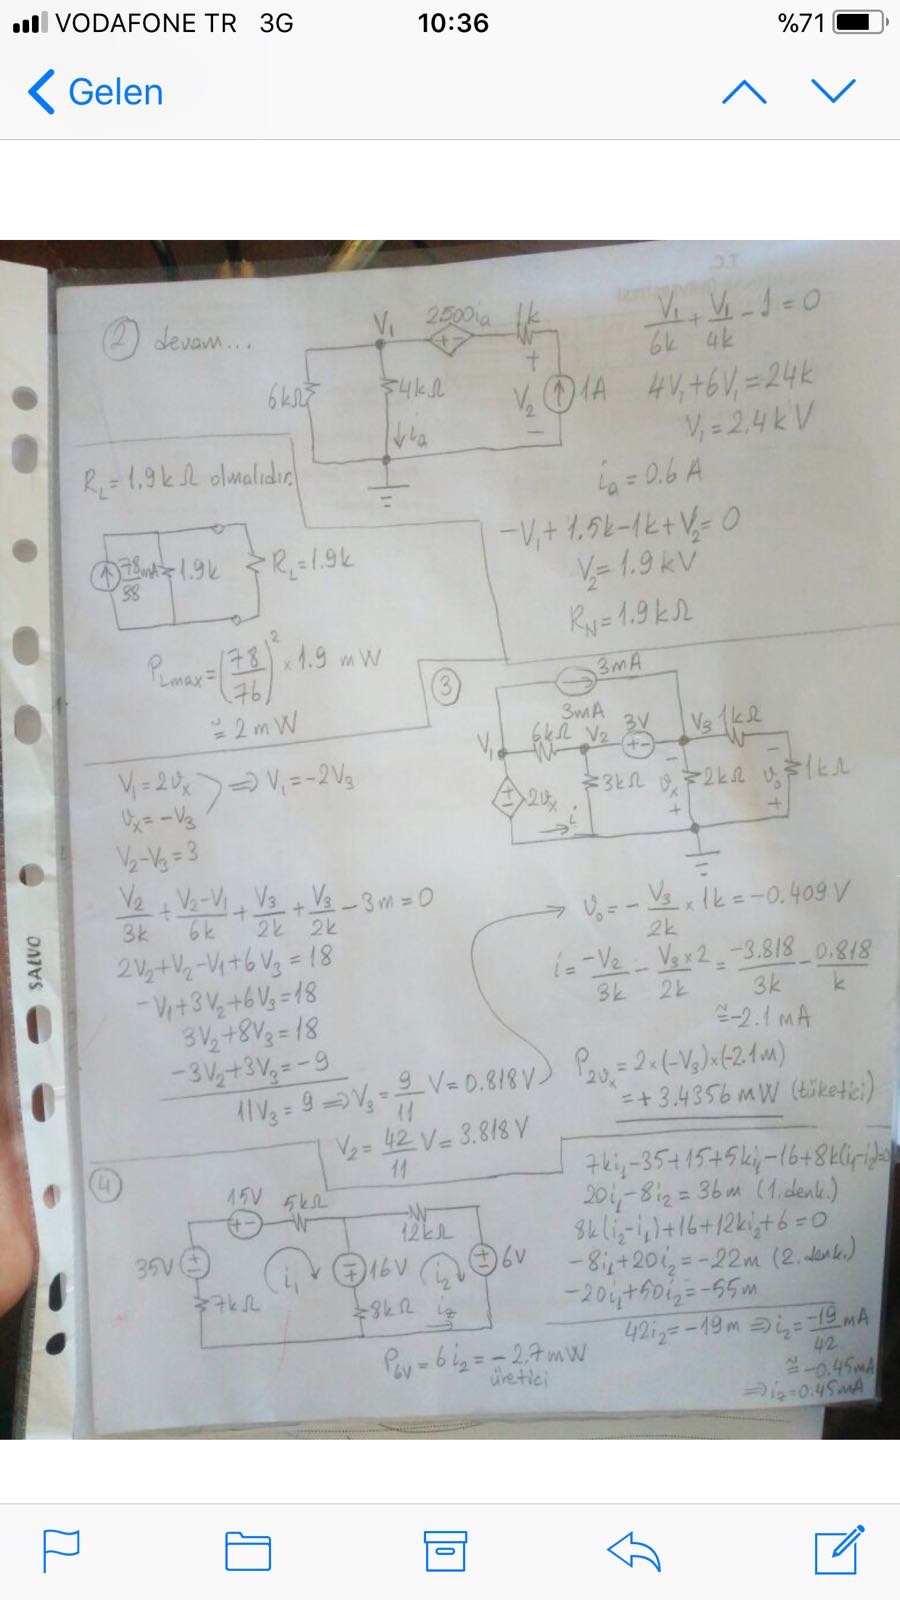 VODAFONE TR 3G 10:36 %71
Gelen
2 devam...
V₁ 2500iₐ 1k
+ -
6kΩ 4kΩ V₂ + - 1A
↓iₐ
V₁/6k + V₁/4k - 1 = 0
4V₁+6V₁=24k
V₁=2.4kV
iₐ=0.6A
-V₁+1.5k-1k+V₂=0
V₂=1.9kV
R_N=1.9kΩ
R_L=1.9kΩ olmalıdır.
78/38 mA 1.9k R_L=1.9k
P_Lmax=(78/76)²×1.9 mW
≅2mW
3
3mA
3mA
V₁ 6kΩ V₂ 3V V₃ 1kΩ
+ -
2vₓ 3kΩ vₓ 2kΩ v₀ 1kΩ
i
V₁=2vₓ ⇒ V₁=-2V₃
vₓ=-V₃
V₂-V₃=3
V₂/3k + (V₂-V₁)/6k + V₃/2k + V₃/2k - 3m=0
2V₂+V₂-V₁+6V₃=18
-V₁+3V₂+6V₃=18
3V₂+8V₃=18
-3V₂+3V₃=-9
11V₃=9 ⇒ V₃=9/11 V=0.818V
V₂=42/11 V=3.818V
→ v₀=-V₃/2k×1k=-0.409V
i=-V₂/3k - V₃×2/2k = -3.818/3k - 0.818/k
≅-2.1mA
P₂ᵥₓ=2×(-V₃)×(-2.1m)
=+3.4356mW (tüketici)
4
15V 5kΩ 12kΩ
35V i₁ 16V i₂ 6V
7kΩ 8kΩ i_z
P₆ᵥ=6i₂=-2.7mW
üretici
7ki₁-35+15+5ki₁-16+8k(i₁-i₂)=0
20i₁-8i₂=36m (1.denk.)
8k(i₂-i₁)+16+12ki₂+6=0
-8i₁+20i₂=-22m (2.denk.)
-20i₁+50i₂=-55m
42i₂=-19m ⇒ i₂=-19/42 mA
≅-0.45mA
⇒i_z=0.45mA
SALVO